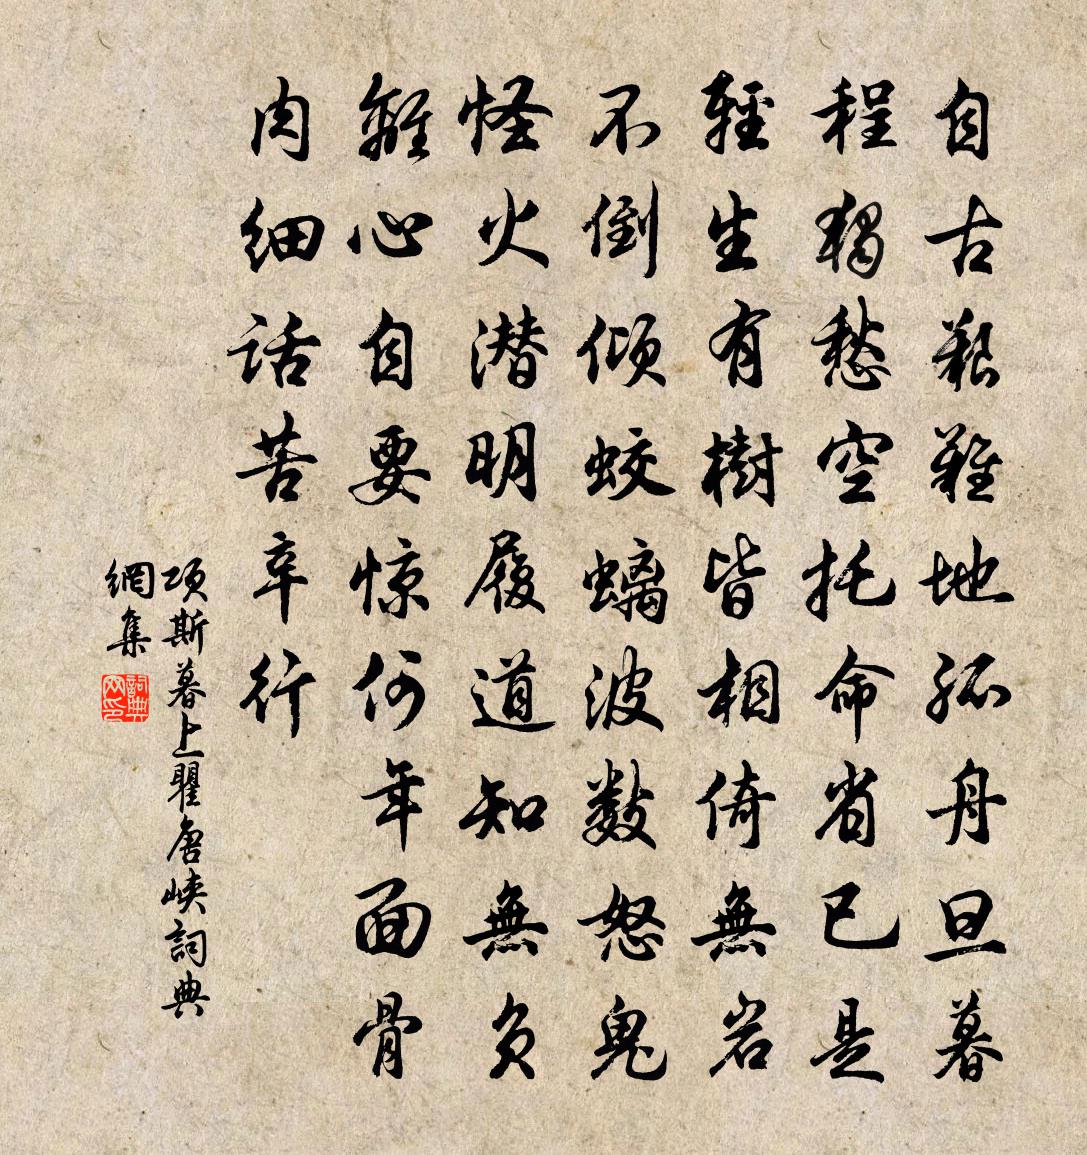 自古艱難地孤舟旦暮
程獨愁空托命省已是
輕生有樹皆相倚無岩
不倒傾蛟螭波數怒鬼
怪火潜明履道知無負
離心自要惊何年面骨
肉細話苦辛行
項斯暮上瞿唐峽詞典
網集
詞典
网印